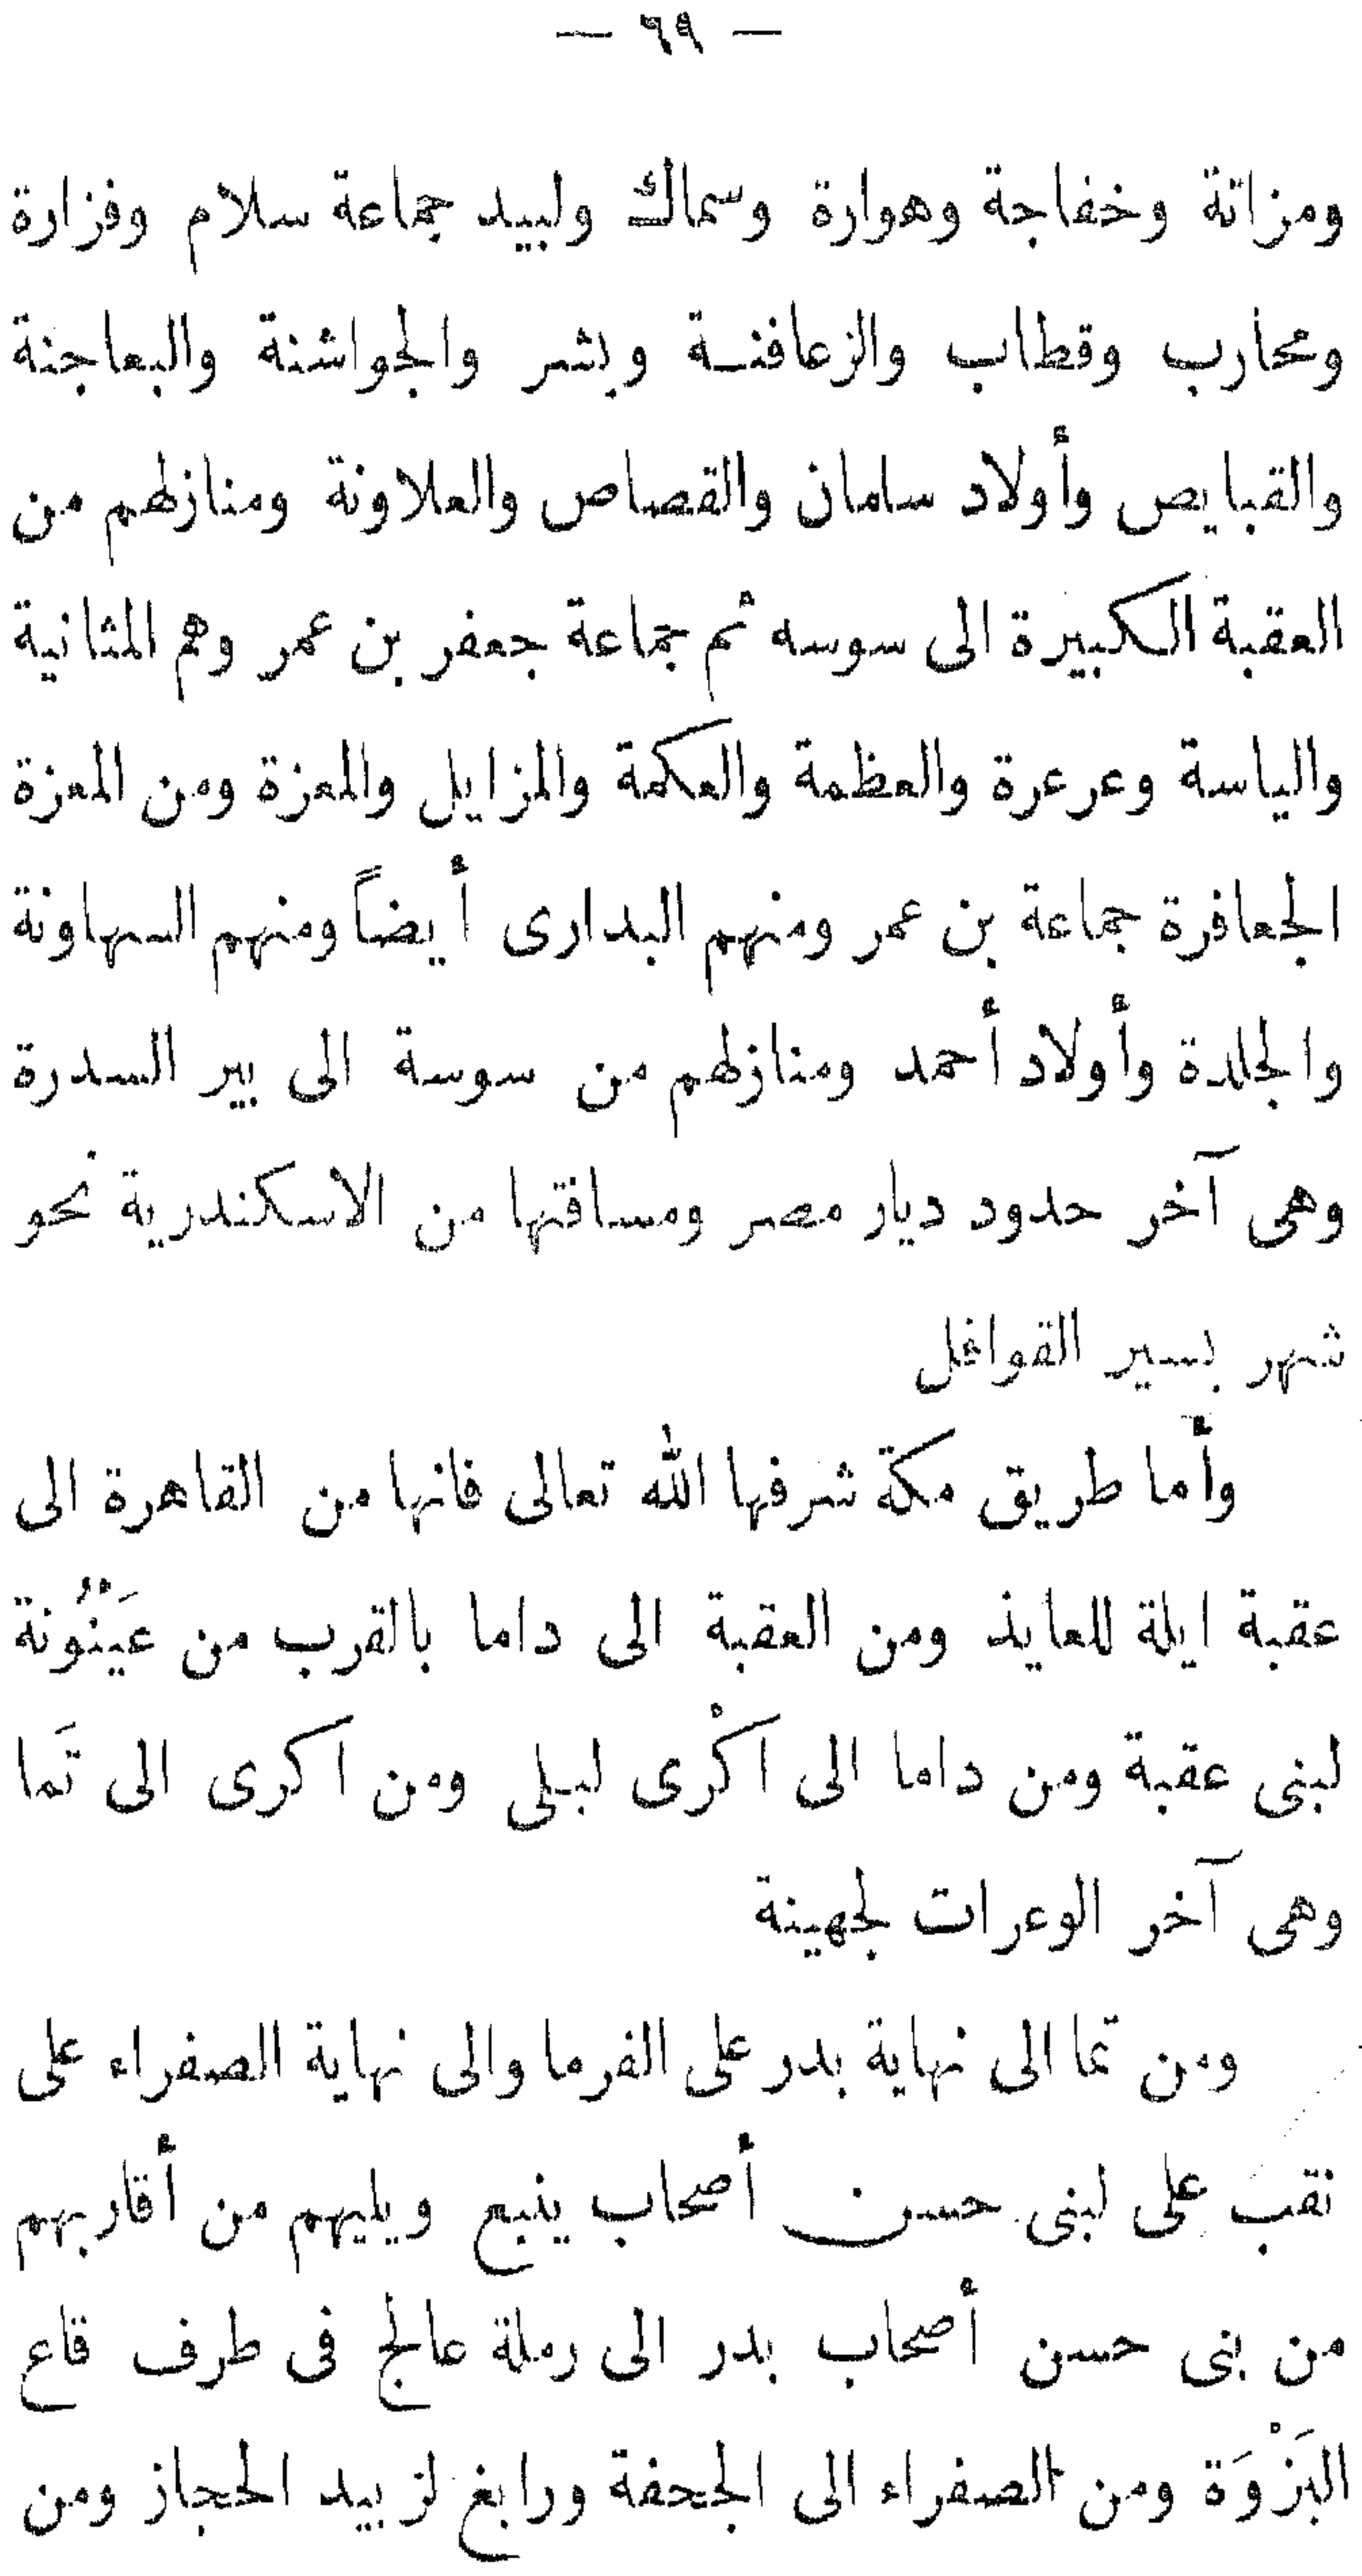 — ٦٩ —
ومزاتة وخفاجة وهوارة وسماك ولبيد جماعة سلام وفزارة
ومحارب وقطاب والزعافنة وبشر والجواشنة والبعاجنة
والقبايص وأولاد سامان والقصاص والعلاونة ومنازلهم من
العقبة الكبيرة الى سوسه ثم جماعة جعفر بن عمر وهم المثانية
والياسة وعرعرة والعظمة والعكمة والمزايل والمعزة ومن المعزة
الجعافرة جماعة بن عمر ومنهم البدارى أيضاً ومنهم السهاونة
والجلدة وأولاد أحمد ومنازلهم من سوسة الى بير السدرة
وهى آخر حدود ديار مصر ومسافتها من الاسكندرية نحو
شهر بسير القوافل
وأما طريق مكة شرفها الله تعالى فانها من القاهرة الى
عقبة ايلة للعايذ ومن العقبة الى داما بالقرب من عَيْنُونة
لبنى عقبة ومن داما الى اكْرى لبلى ومن اكرى الى تَما
وهى آخر الوعرات لجهينة
ومن تما الى نهاية بدر على الفرما والى نهاية الصفراء على
نقب على لبنى حسن أصحاب ينبع ويليهم من أقاربهم
من بنى حسن أصحاب بدر الى رملة عالج فى طرف قاع
البَزْوَة ومن الصفراء الى الجحفة ورابغ لزبيد الحجاز ومن